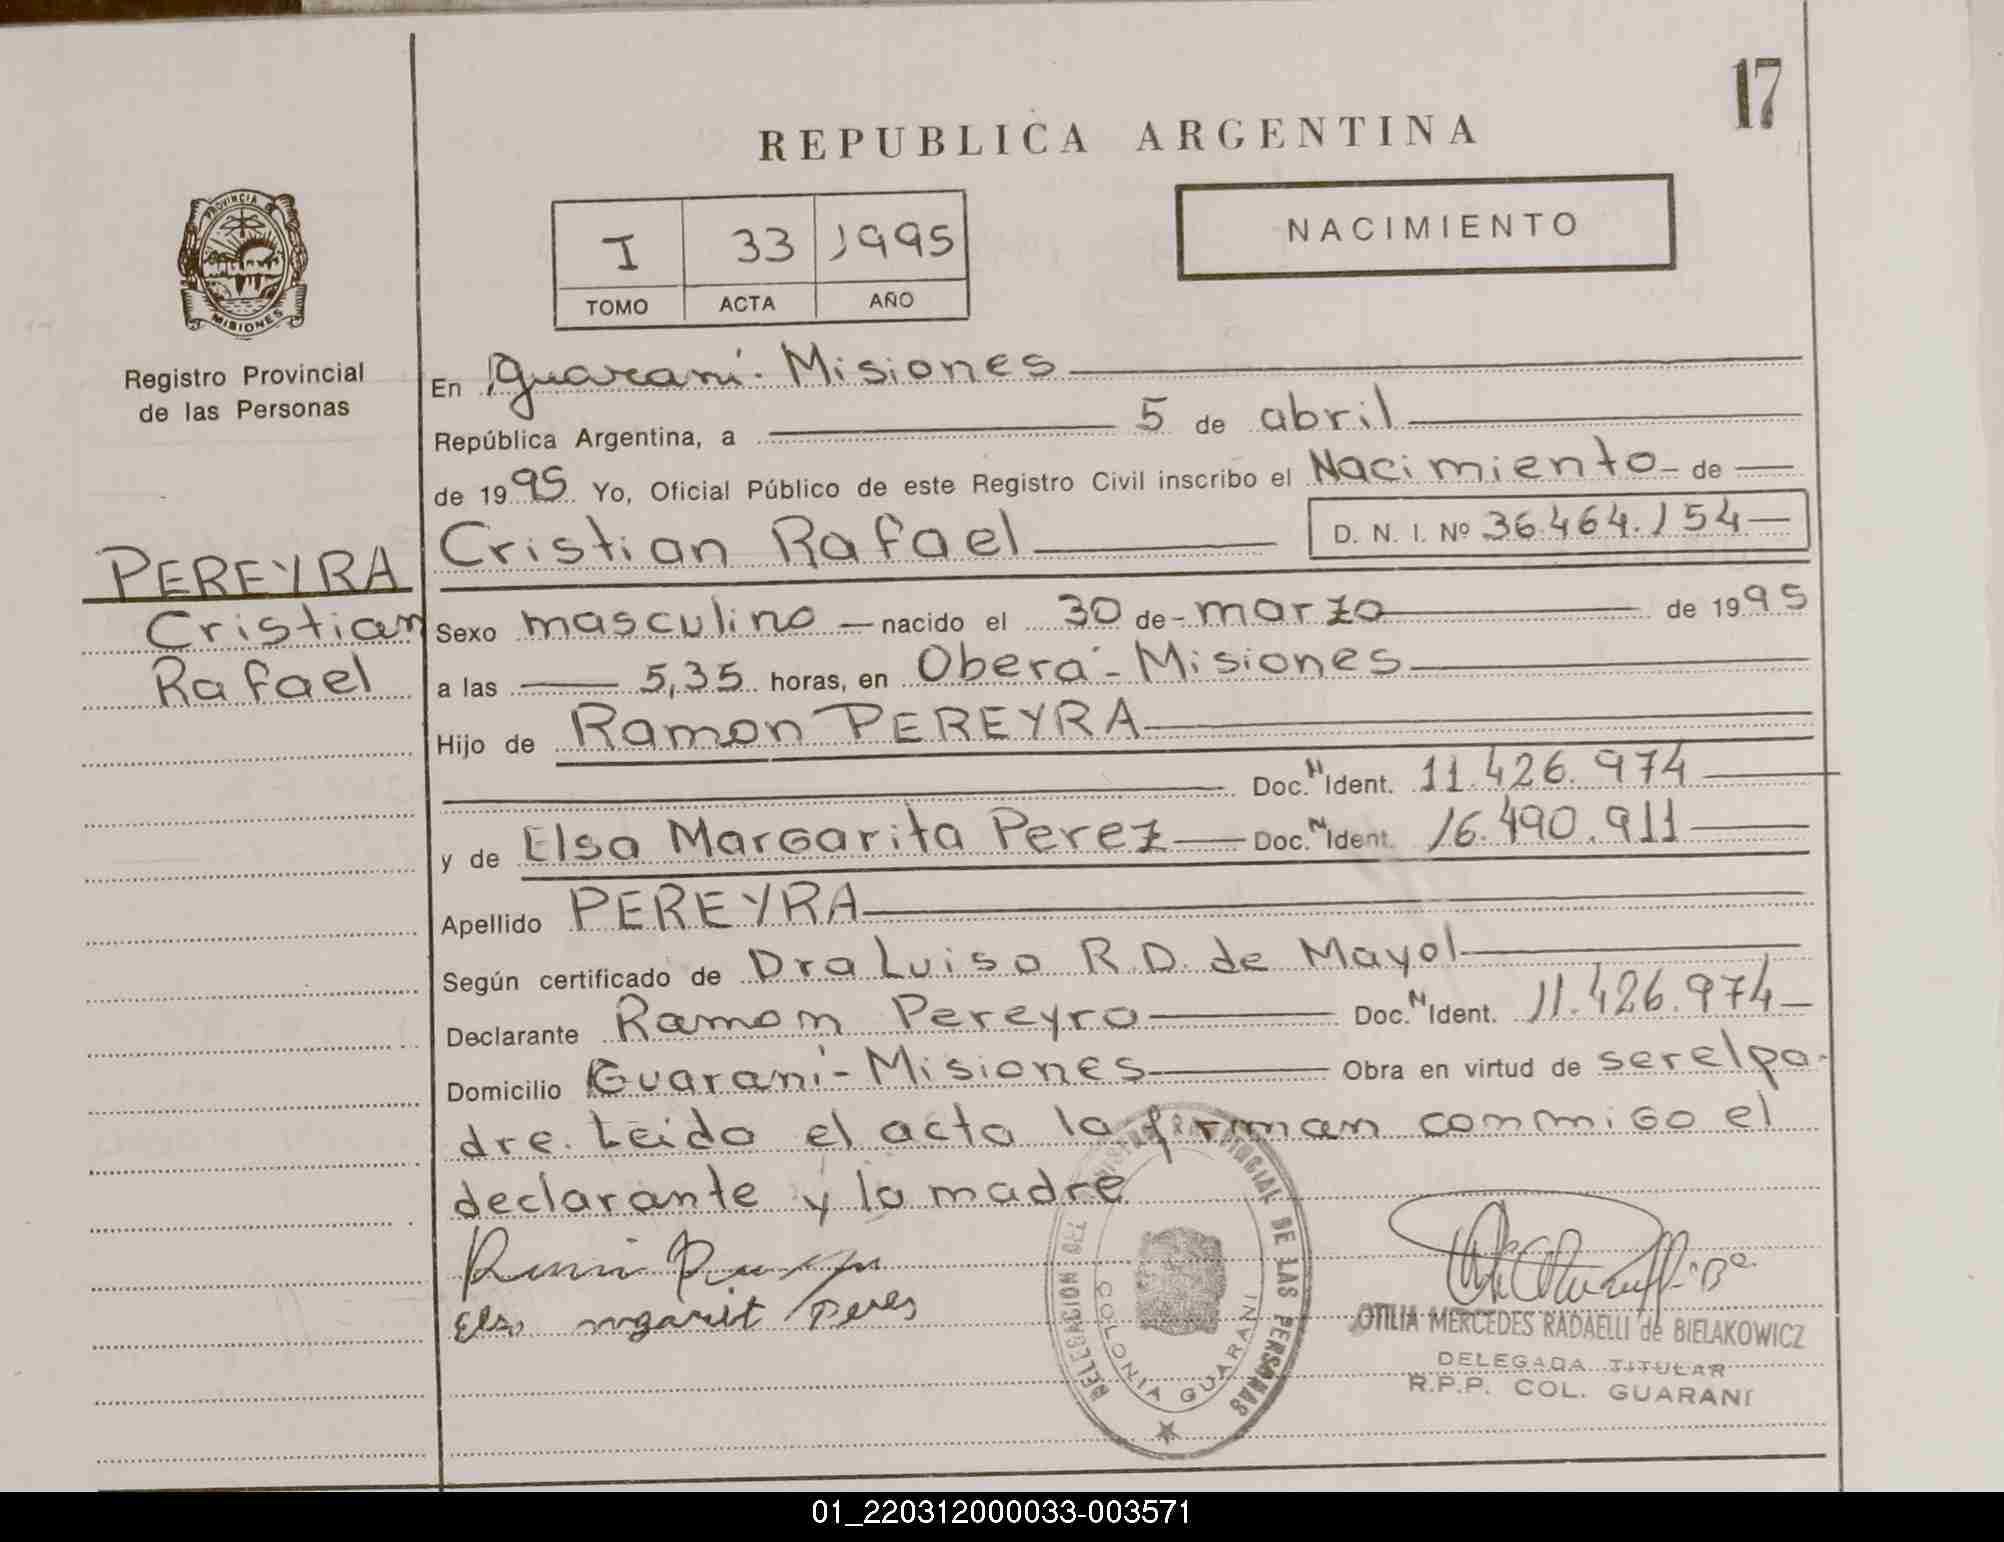 17
REPUBLICA ARGENTINA
PROVINCIA DE
MISIONES
I 33 1995
TOMO ACTA AÑO
NACIMIENTO
Registro Provincial
de las Personas
En Guaraní - Misiones
República Argentina, a 5 de abril
de 1995 Yo, Oficial Público de este Registro Civil inscribo el Nacimiento de
Cristian Rafael D. N. I. Nº 36.464.154
PEREYRA
Cristian
Rafael
Sexo masculino nacido el 30 de marzo de 1995
a las 5,35 horas, en Oberá - Misiones
Hijo de Ramon PEREYRA
Doc. N Ident. 11.426.974
y de Elsa Margarita Perez Doc. N Ident. 16.490.911
Apellido PEREYRA
Según certificado de Dra Luisa R.D. de Mayol
Declarante Ramon Pereyra Doc. N Ident. 11.426.974
Domicilio Guaraní - Misiones Obra en virtud de ser el pa-
dre. Leido el acta la firman conmigo el
declarante y la madre
Elsa mgarit Peres
DELEGACION REGISTRO PROVINCIAL DE LAS PERSONAS
COLONIA GUARANI
OTILIA MERCEDES RADAELLI de BIELAKOWICZ
DELEGADA TITULAR
R.P.P. COL. GUARANI
01_220312000033-003571